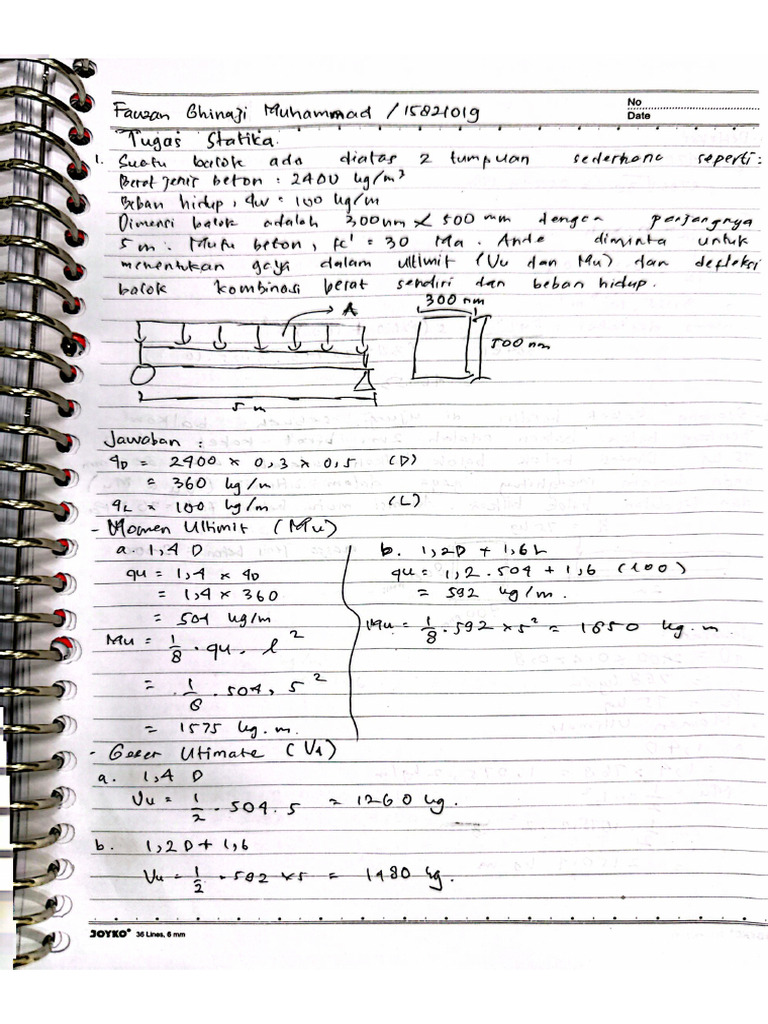 No
Date
Fauzan Ghinazi Muhammad / 15821019
Tugas Statika.
1. Suatu balok ada diatas 2 tumpuan sederhana seperti:
Berat jenis beton : 2400 kg/m³
Beban hidup, qw = 100 kg/m
Dimensi balok adalah 300 mm x 500 mm dengan panjangnya
5 m. Mutu beton, fc' = 30 Ma. Anda diminta untuk
menentukan gaya dalam ultimit (Vu dan Mu) dan defleksi
balok kombinasi berat sendiri dan beban hidup.
300 mm
A
500 mm
5 m
Jawaban :
qD = 2400 x 0,3 x 0,5 (D)
= 360 kg/m
qL = 100 kg/m (L)
- Momen Ultimit (Mu)
a 1,4 D
qu = 1,4 x qD
= 1,4 x 360
= 504 kg/m
Mu = 1/8 . qu . l²
= 1/8 . 504, 5²
= 1575 kg.m.
b. 1,2D + 1,6L
qu = 1,2 . 504 + 1,6 (100)
= 592 kg/m.
Mu = 1/8 . 592 x 5² = 1850 kg.m
- Geser Ultimate (Vu)
a. 1,4 D
Vu = 1/2 . 504 . 5 = 1260 kg.
b. 1,2D + 1,6
Vu = 1/2 . 592 x 5 = 1480 kg.
JOYKO® 36 Lines, 6 mm